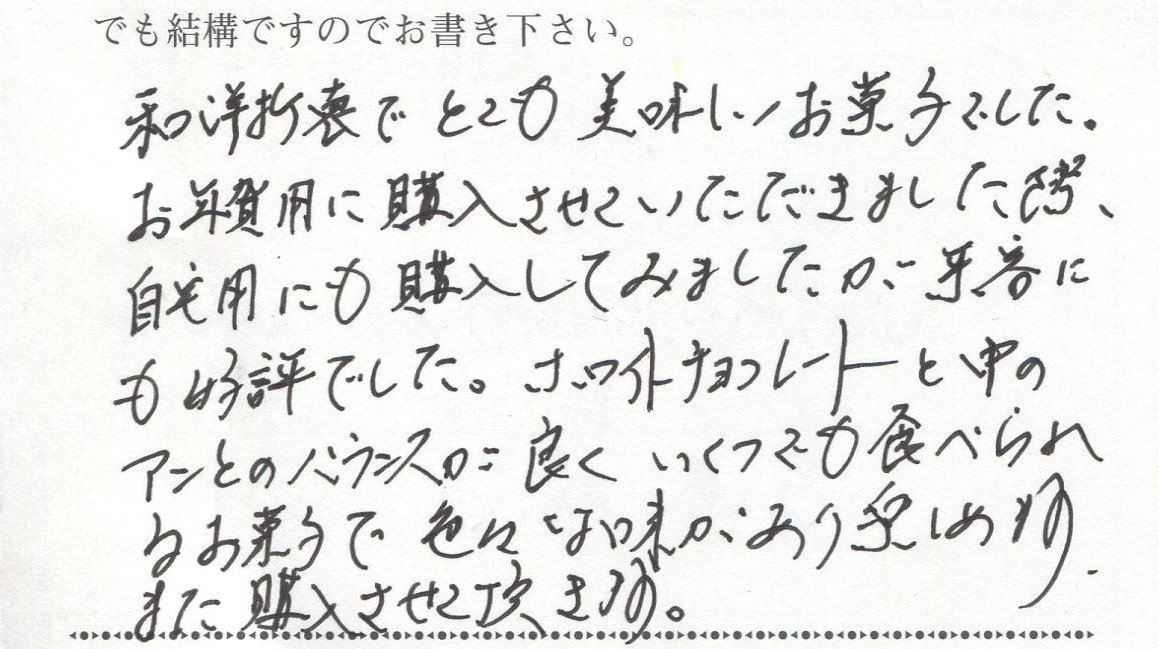 でも結構ですのでお書き下さい。
和洋折衷でとても美味しいお菓子でした。
お年賀用に購入させていただきました際、
自宅用にも購入してみましたが来客に
も好評でした。ホワイトチョコレートと中の
アンとのバランスが良くいくつでも食べられ
るお菓子で色々な味があり楽しめます.
また購入させて頂きます。